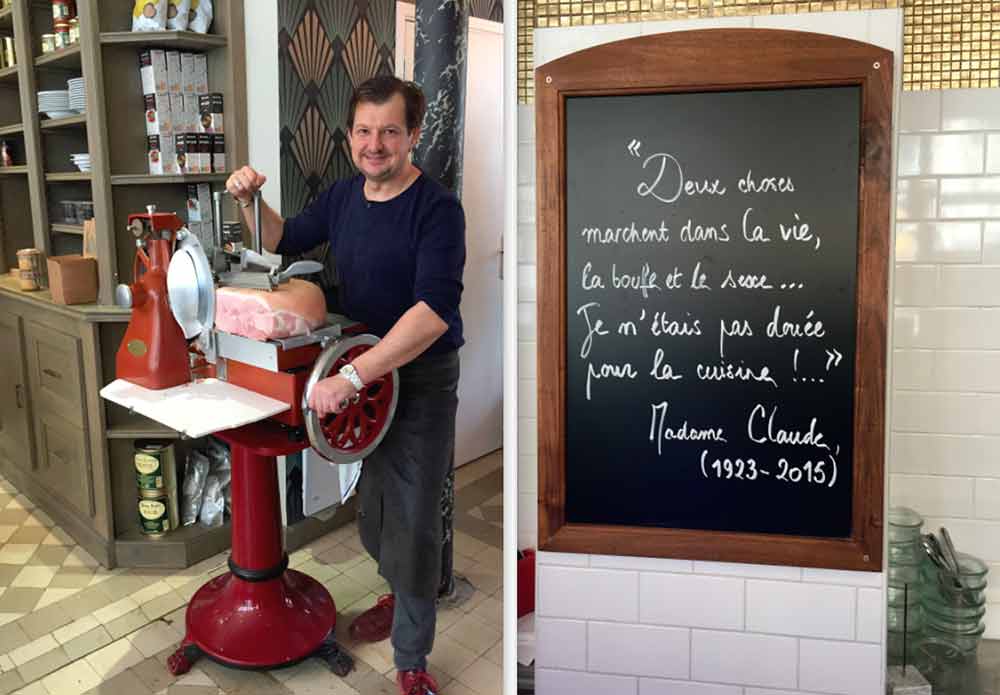 “Deux choses
marchent dans la vie,
la bouffe et le sexe...
Je n'étais pas douée
pour la cuisine !...”
Madame Claude,
(1923-2015)